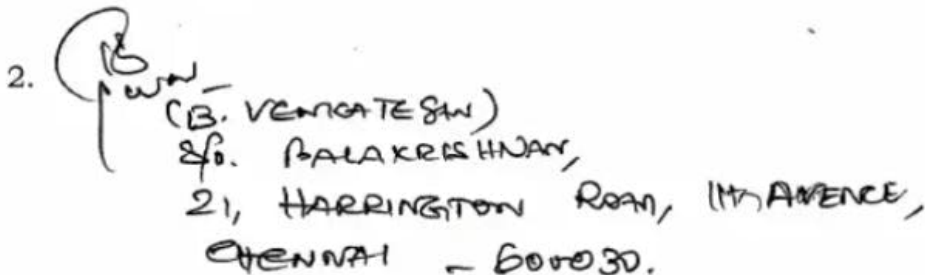 2.
(B. VENKATESAN)
S/o. BALAKRISHNAN,
21, HARRINGTON ROAD, AVENUE,
CHENNAI - 600030.